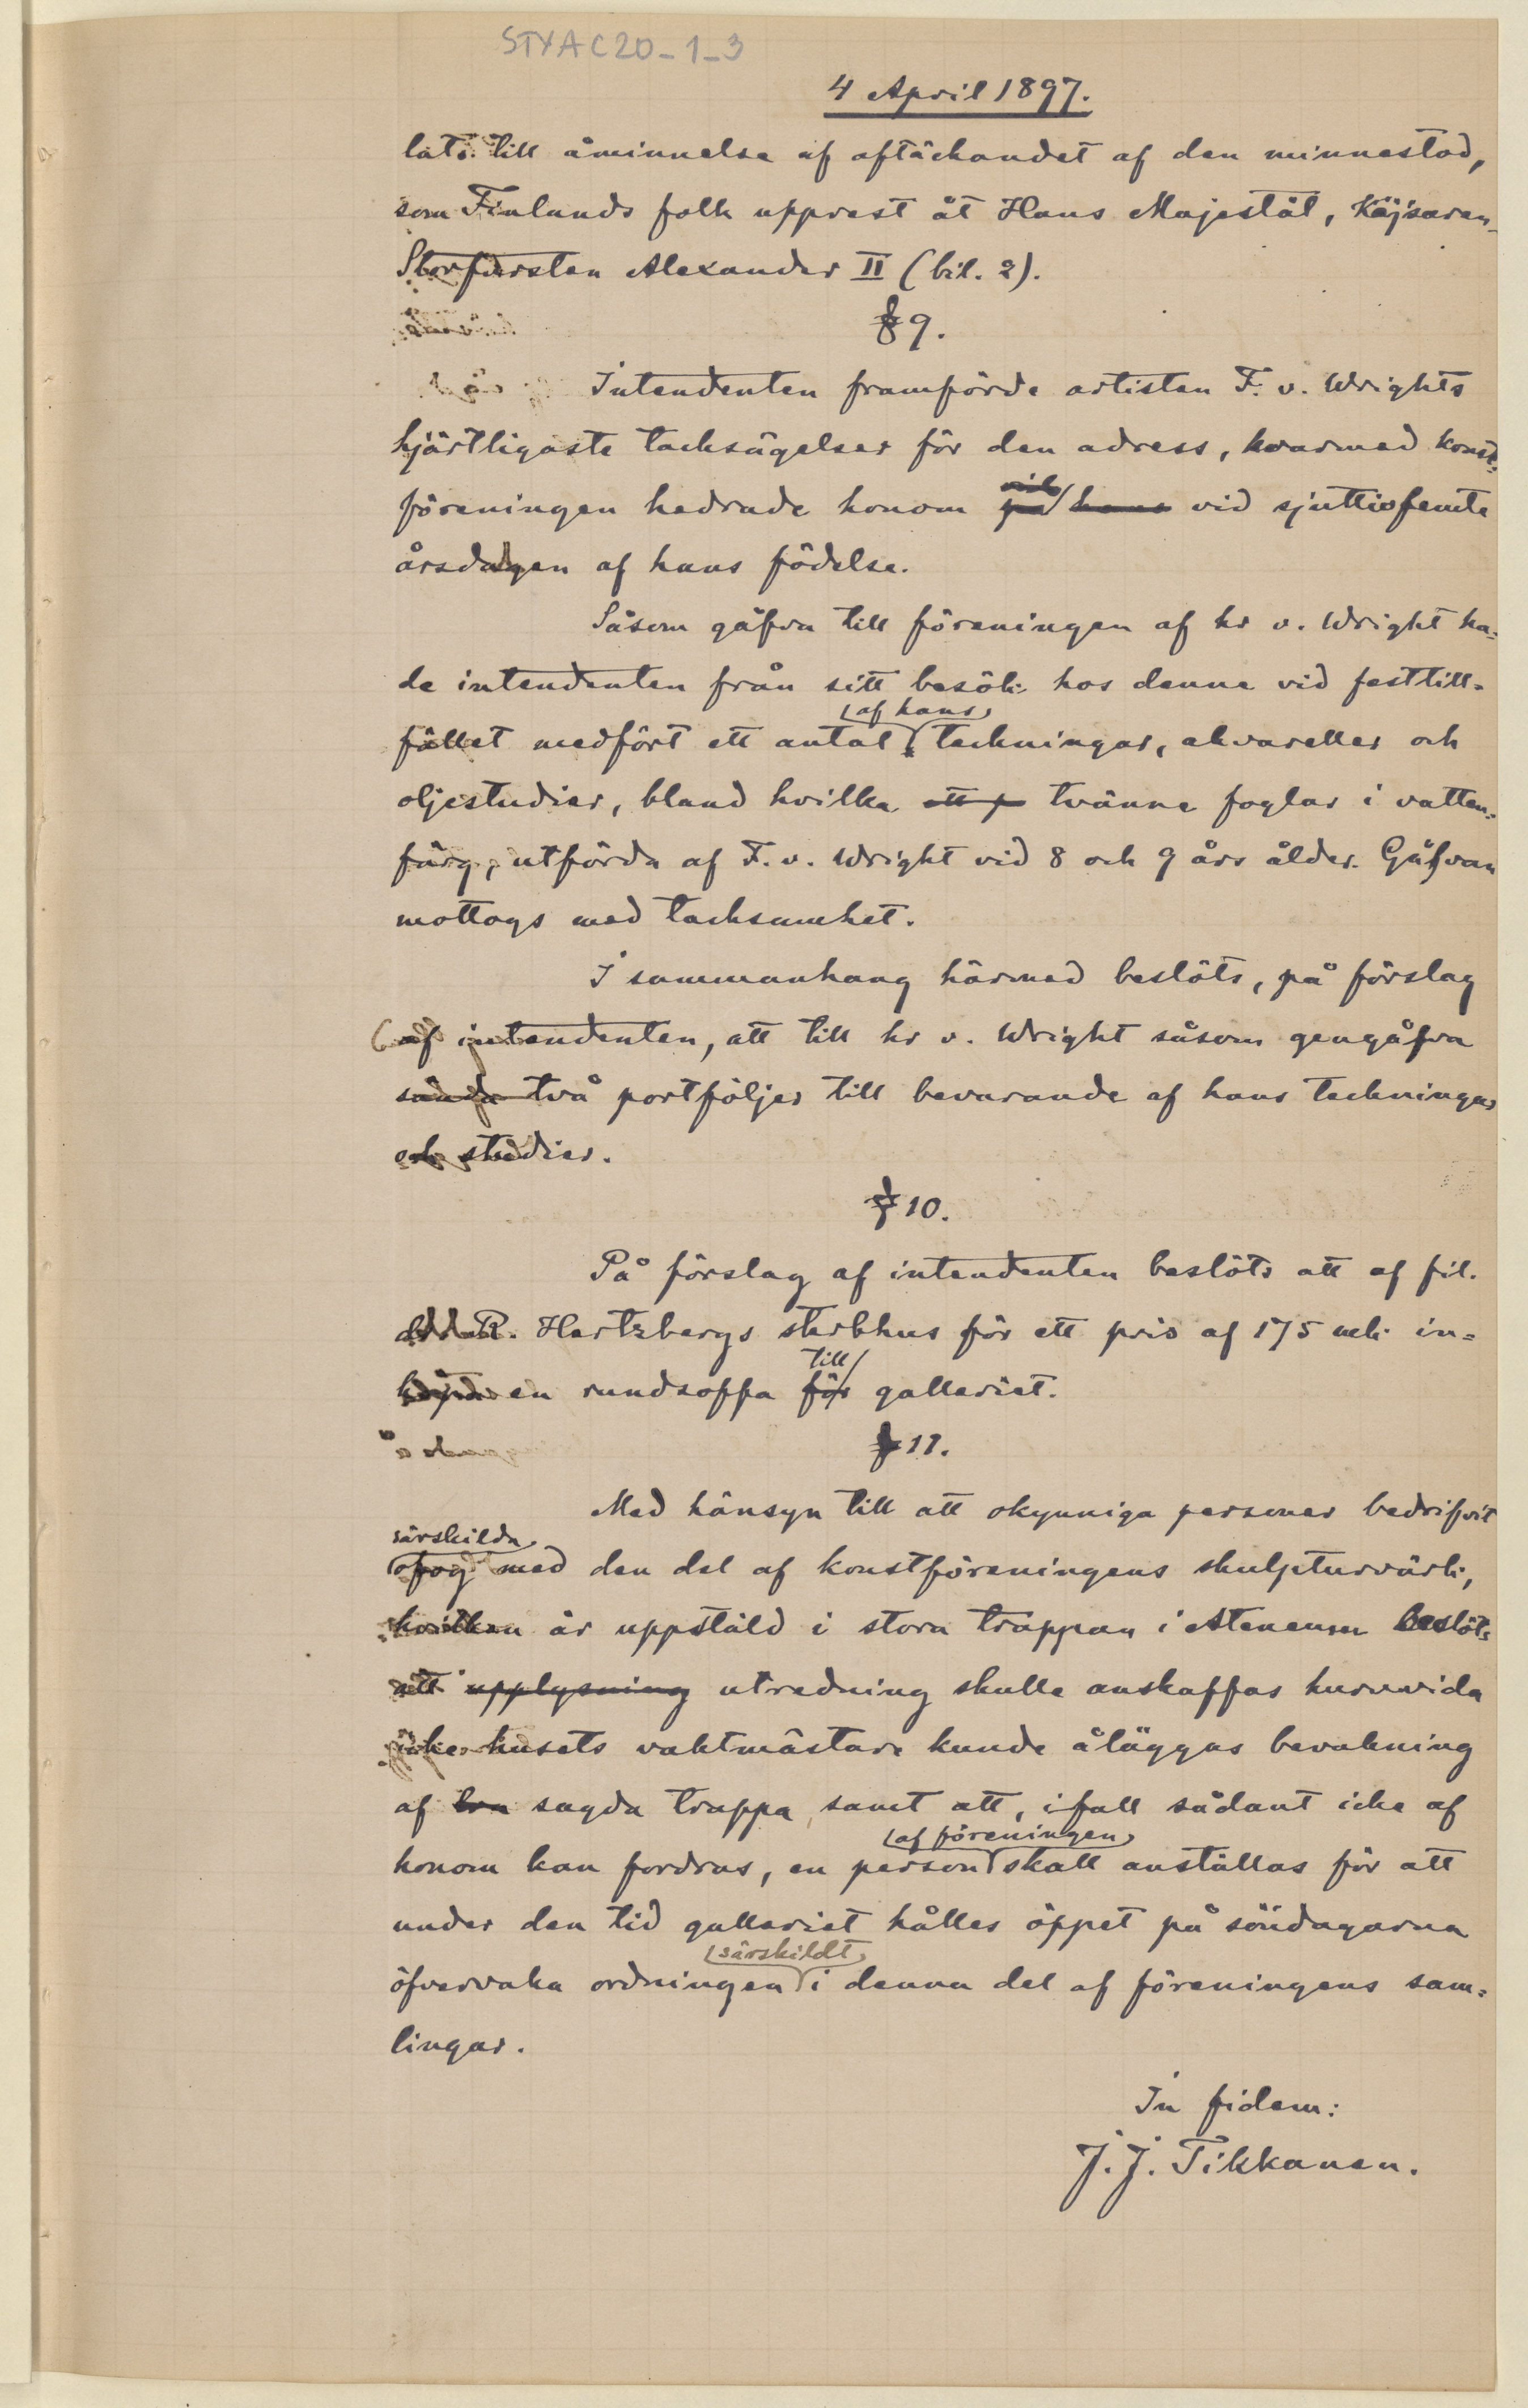 STYAC20-1-3
4 April 1897.
låts till åminnelse af aftäckandet af den minnestod,
som Finlands folk upprest åt Hans Majestät, Käjsaren-
Storfursten Alexander II (bil. 2).
§ 9.
Intendenten framförde artisten F. v. Wrights
hjärtligaste tacksägelser för den adress, hvarmed konst-
föreningen hedrade honom på hans vid sjuttiofemte
årsdagen af hans födelse.
Såsom gåfva till föreningen af hr v. Wright ha-
de intendenten från sitt besök hos denne vid festtill-
fället medfört ett antal af hans teckningar, akvareller och
oljestudier, bland hvilka ett p tvänne foglar i vatten-
färg, utförda af F. v. Wright vid 8 och 9 års ålder. Gåfvan
mottogs med tacksamhet.
I sammanhang härmed beslöts, på förslag
af intendenten, att till hr v. Wright såsom gengåfva
sända två portföljer till bevarande af hans teckningar
och studier.
§ 10.
På förslag af intendenten beslöts att af fil.
d:r R. Hertzbergs sterbhus för ett pris af 175 mk in-
köpa en rundsoffa för till galleriet.
§ 11.
Med hänsyn till att okynniga personer bedrifvit
särskilda
ofog med den del af konstföreningens skulpturvärk,
hvilken är uppstäld i stora trappan i Ateneum beslöts
att upplysning utredning skulle anskaffas huruvida
icke husets vaktmästare kunde åläggas bevakning
af sagda trappa, samt att, ifall sådant icke af
honom kan fordras, en person af föreningen skall anställas för att
under den tid galleriet hålles öppet på söndagarna
öfvervaka ordningen särskildt i denna del af föreningens sam-
lingar.
In fidem:
J. J. Tikkanen.